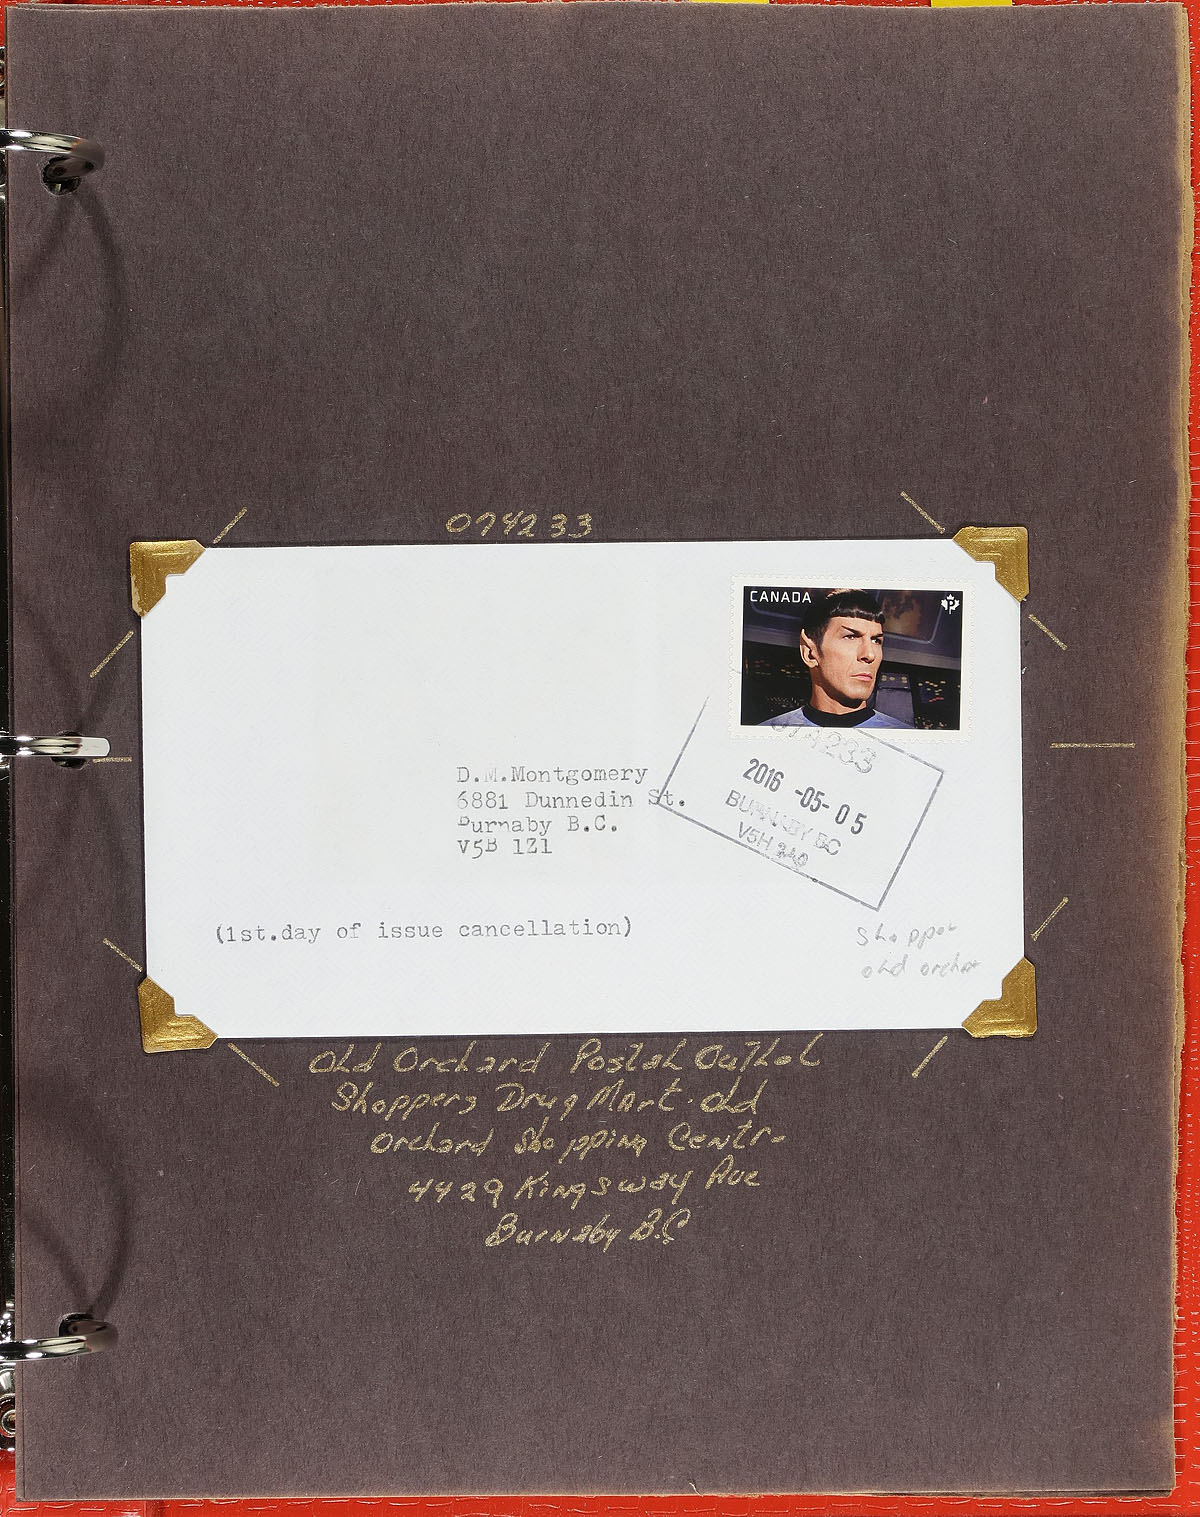 074233
CANADA
P
074233
2016 -05- 05
BURNABY BC
V5H
D.M.Montgomery
6881 Dunnedin St.
Burnaby B.C.
V5B 1Z1
(1st.day of issue cancellation)
Shopper
old orchar
Old Orchard Postal Outlet
Shoppers Drug Mart. Old
Orchard Shopping Centr-
4429 Kingsway Ave
Burnaby B.C